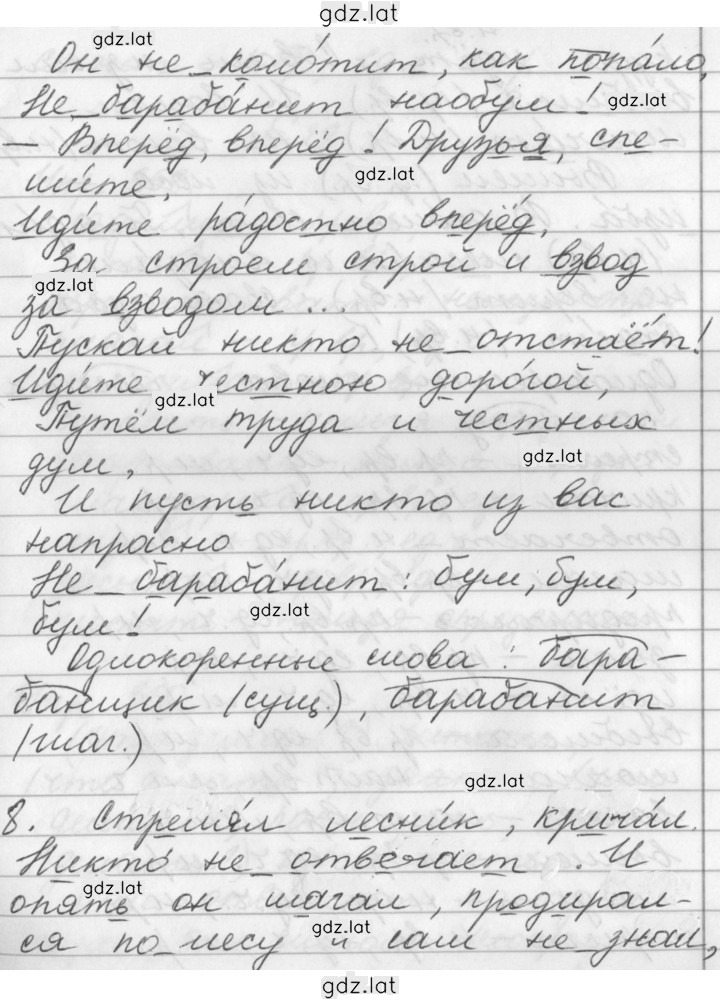 gdz.lat
gdz.lat
Он не колóтит, как попáло,
Не барабáнит наобум! gdz.lat
— Вперёд, вперёд! Друзья, спе-
gdz.lat
ши́те,
Иди́те рáдостно вперёд,
За строем строй и взвод
gdz.lat
за взводом...
Пускай никто не отстаёт!
Иди́те честною дорóгой,
gdz.lat
Путём труда и честных
дум, gdz.lat
И пусть никто из вас
напрасно
Не барабáнит: бум, бум,
бум! gdz.lat
Однокоренные слова: бара-
банщик (сущ.), барабанит
(глаг.)
gdz.lat
8. Стреля́л лесни́к, кричáл.
Никтó не отвечает. И
gdz.lat
опять он шагал, продирал-
gdz.lat
ся по лесу и сам не знал,
gdz.lat